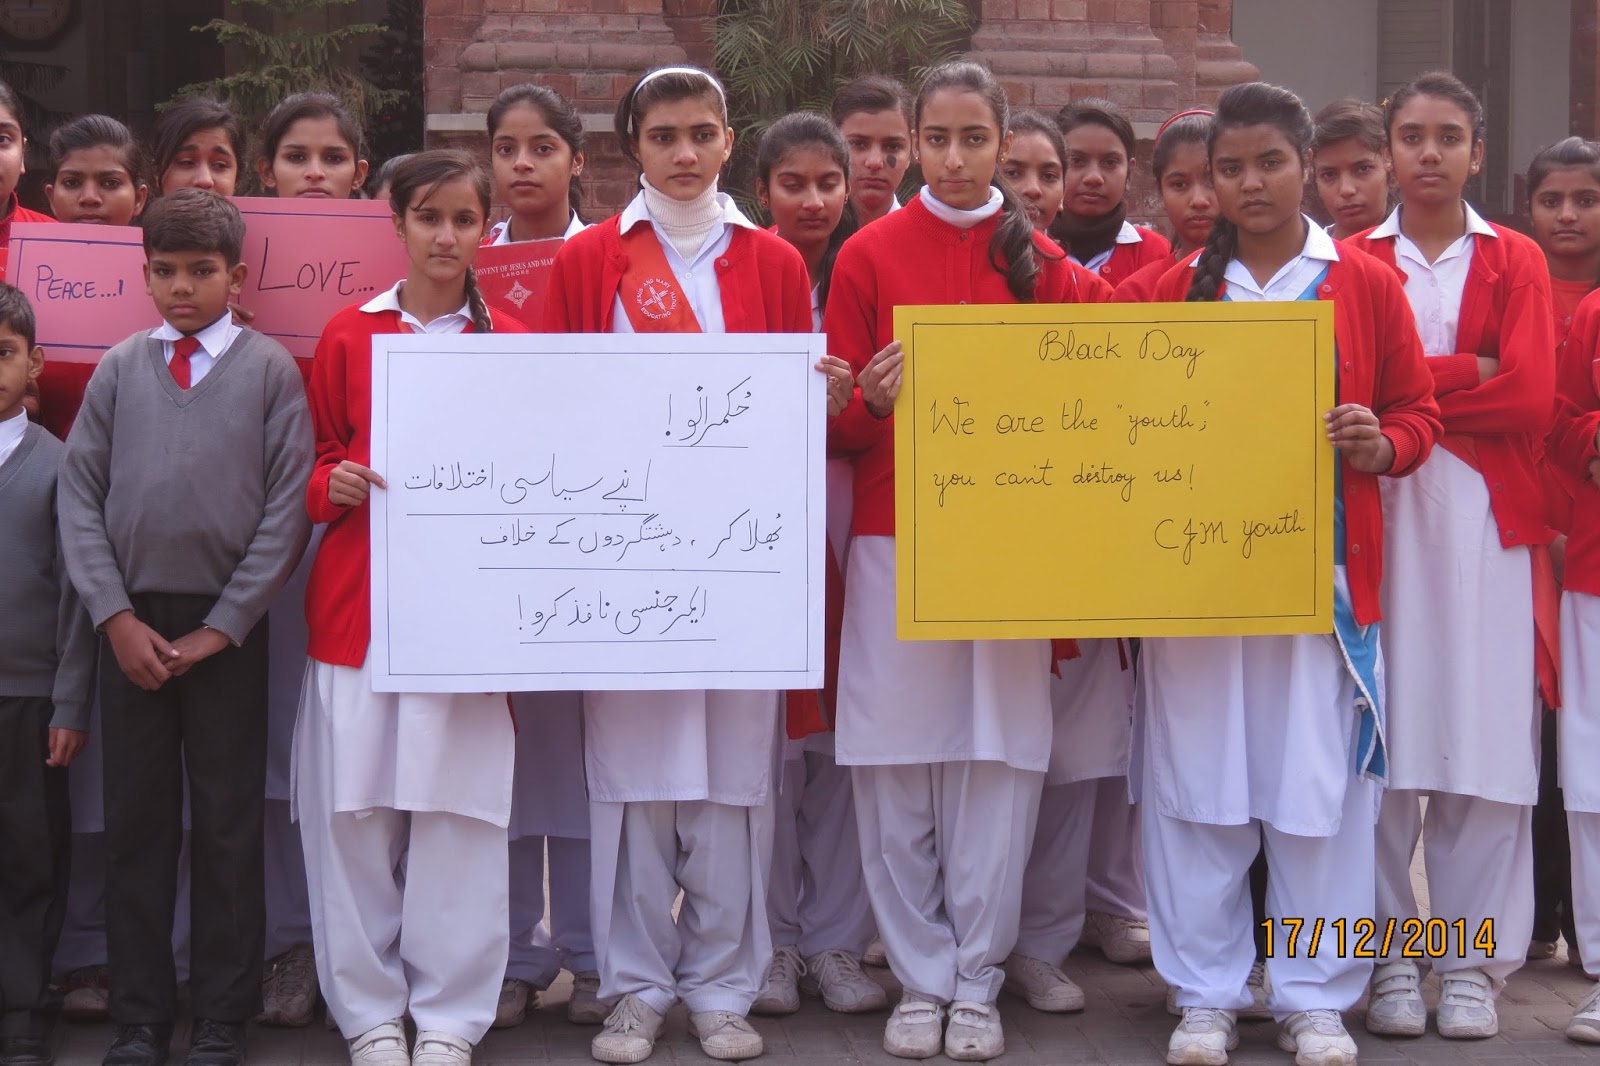 PEACE...!
LOVE...
CONVENT OF JESUS AND MARY
LAHORE
JESUS AND MARY
EDUCATING YOUTH
حُکمرانو!
اپنے سیاسی اختلافات
بُھلا کر، دہشتگردوں کے خلاف
ایمرجنسی نافذ کرو!
Black Day
We are the "youth";
you can't destroy us!
CJM youth
17/12/2014